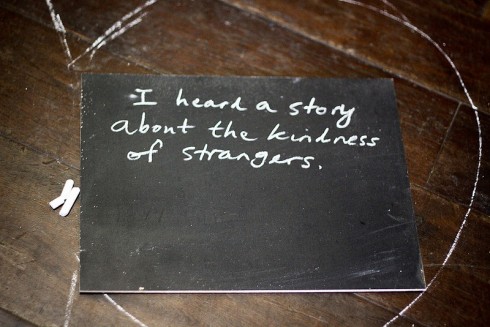 I heard a story
about the kindness
of strangers.